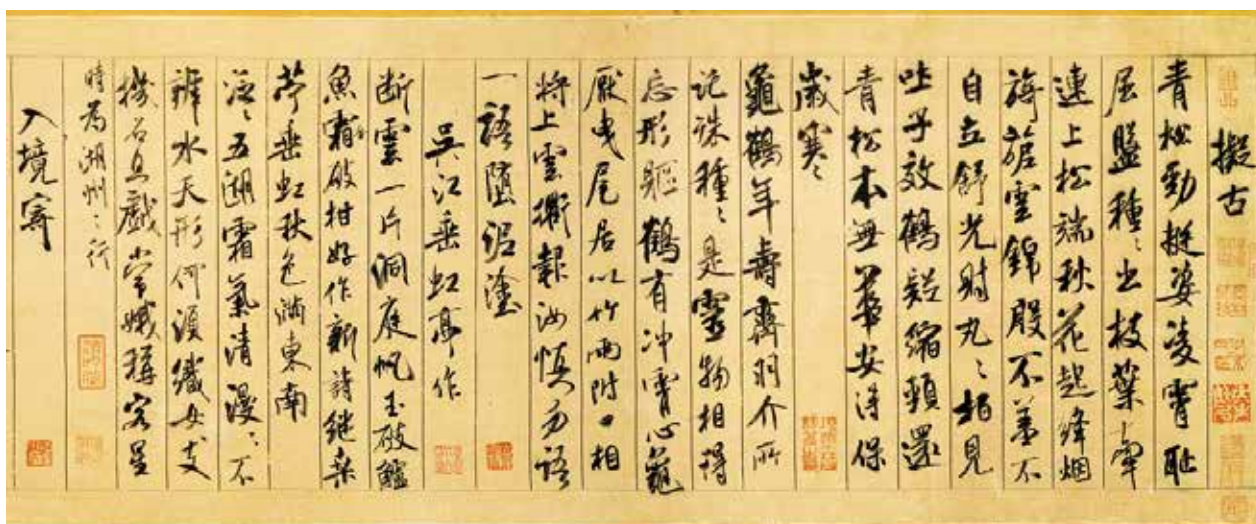 擬古
青松勁挺姿凌霄恥
屈盤種〻出枝葉牽
連上松端秋花起絳烟
旖旎雲錦殷不羞不
自立舒光射丸〻柏見
吐子效鶴疑縮頸還
青松本無華安得保
歲寒〻
龜鶴年壽齊羽介所
託殊種〻是靈物相得
忘形軀鶴有沖霄心龜
厭曳尾居以竹兩附口相
將上雲衢報汝慎勿語
一語墮泥塗
吳江垂虹亭作
断雲一片洞庭帆玉破鱸
魚霜破柑好作新詩継桑
苧垂虹秋色満東南
泛〻五湖霜氣清漫〻不
辨水天形何須織女支
機石且戲常娥稱客星
時為湖州之行
入境寄